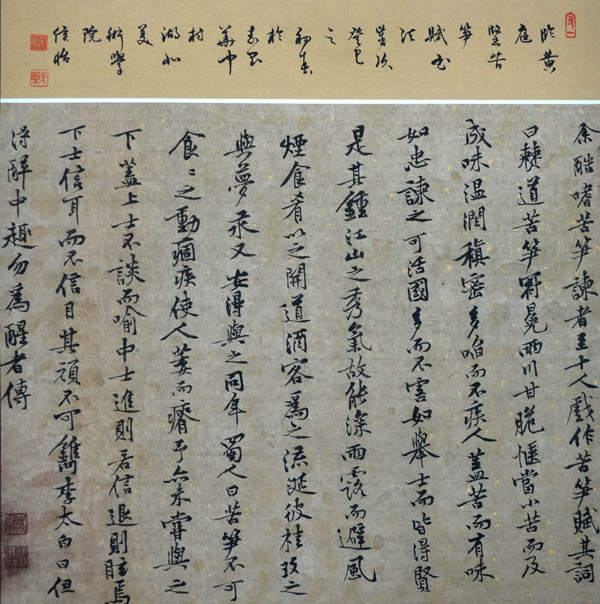 臨黄
庭
堅苦
笋
賦書
法
歲次
癸巳
之
初春
於
華中
村
湖北
美
術學
院
余酷嗜苦笋諫者至十人戲作苦笋賦其詞
曰僰道苦笋冠冕兩川甘脆愜當小苦而及
成味温潤縝密多啗而不疾人蓋苦而有味
如忠諫之可活國多而不害如舉士而皆得賢
是其鍾江山之秀氣故能深雨露而避風
煙食肴以之開道酒客為之流涎彼桂玫之
與夢永又安得與之同年蜀人曰苦笋不可
食〻之動痼疾使人萎而瘠予亦未嘗與之
下蓋上士不談而喻中士進則若信退則眩焉
下士信耳而不信目其頑不可鐫李太白曰但
得醉中趣勿為醒者傳